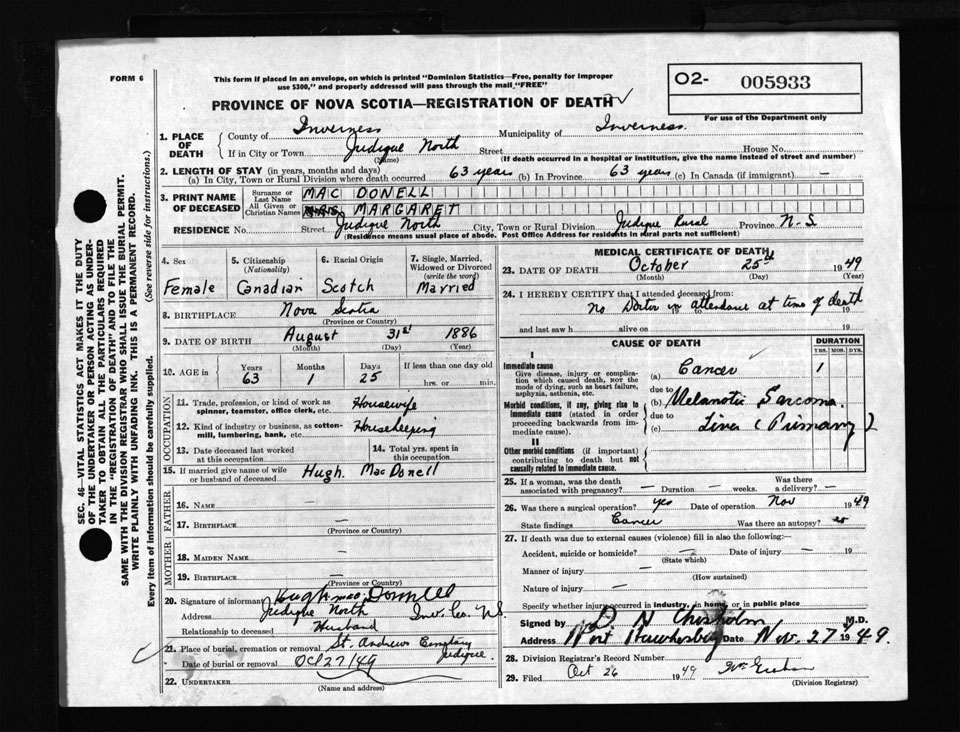 FORM 6
This form if placed in an envelope, on which is printed "Dominion Statistics—Free, penalty for improper
use $300," and properly addressed will pass through the mail "FREE"
O2- 005933
For use of the Department only
PROVINCE OF NOVA SCOTIA—REGISTRATION OF DEATH
1. PLACE OF DEATH
County of Inverness Municipality of Inverness.
If in City or Town Judique North Street House No.
(Name) (If death occurred in a hospital or institution, give the name instead of street and number)
2. LENGTH OF STAY (in years, months and days)
(a) In City, Town or Rural Division where death occurred 63 years (b) In Province 63 years (c) In Canada (if immigrant) —
3. PRINT NAME OF DECEASED
Surname or Last Name MAC DONELL
All Given or Christian Names MRS MARGARET
RESIDENCE No. Street Judique North City, Town or Rural Division Judique Rural Province N.S.
(Residence means usual place of abode. Post Office Address for residents in rural parts not sufficient)
4. Sex
Female
5. Citizenship (Nationality)
Canadian
6. Racial Origin
Scotch
7. Single, Married, Widowed or Divorced (write the word)
Married
8. BIRTHPLACE Nova Scotia
(Province or Country)
9. DATE OF BIRTH August 31st 1886
(Month) (Day) (Year)
10. AGE in Years 63 Months 1 Days 25 If less than one day old
hrs. or min.
OCCUPATION
11. Trade, profession, or kind of work as spinner, teamster, office clerk, etc. Housewife
12. Kind of industry or business, as cotton-mill, lumbering, bank, etc. Housekeeping
13. Date deceased last worked at this occupation
14. Total yrs. spent in this occupation
15. If married give name of wife or husband of deceased Hugh. MacDonell
FATHER
16. NAME —
17. BIRTHPLACE —
(Province or Country)
MOTHER
18. MAIDEN NAME —
19. BIRTHPLACE —
(Province or Country)
20. Signature of informant Hugh mac Donnell
Address Judique North Inv. Co. N.S.
Relationship to deceased Husband
21. Place of burial, cremation or removal St. Andrews Judique
Date of burial or removal Oct 27/49
22. UNDERTAKER
(Name and address)
MEDICAL CERTIFICATE OF DEATH
23. DATE OF DEATH October 25th 1949
(Month) (Day) (Year)
24. I HEREBY CERTIFY that I attended deceased from:
No Doctor in attendance at time of death
19 to 19
and last saw h alive on 19
CAUSE OF DEATH
DURATION
YRS. MOS. DYS.
I
Immediate cause
Give disease, injury or complication which caused death, NOT the mode of dying, such as heart failure, asphyxia, asthenia, etc.
(a) Cancer 1
due to
Morbid conditions, if any, giving rise to immediate cause (stated in order proceeding backwards from immediate cause).
(b) Melanotic Sarcoma
due to
(c) Liver (Primary)
II
Other morbid conditions (if important) contributing to death but not causally related to immediate cause.
25. If a woman, was the death associated with pregnancy? — Duration — weeks. Was there a delivery? —
26. Was there a surgical operation? yes Date of operation Nov 1949
State findings Cancer Was there an autopsy?
27. If death was due to external causes (violence) fill in also the following:
Accident, suicide or homicide? — Date of injury — 19
(State which)
Manner of injury —
(How sustained)
Nature of injury —
Specify whether injury occurred in industry, in home, or in public place
Signed by P. N Chisholm M.D.
Address Port Hawkesbury Date Nov. 27 1949.
28. Division Registrar's Record Number
29. Filed Oct 26 1949
(Division Registrar)
SEC. 46—VITAL STATISTICS ACT MAKES IT THE DUTY
OF THE UNDERTAKER OR PERSON ACTING AS UNDER-
TAKER TO OBTAIN ALL THE PARTICULARS REQUIRED
IN THE "REGISTRATION OF DEATH" AND TO FILE THE
SAME WITH THE DIVISION REGISTRAR WHO SHALL ISSUE THE BURIAL PERMIT.
WRITE PLAINLY WITH UNFADING INK. THIS IS A PERMANENT RECORD.
Every item of information should be carefully supplied. (See reverse side for instructions.)